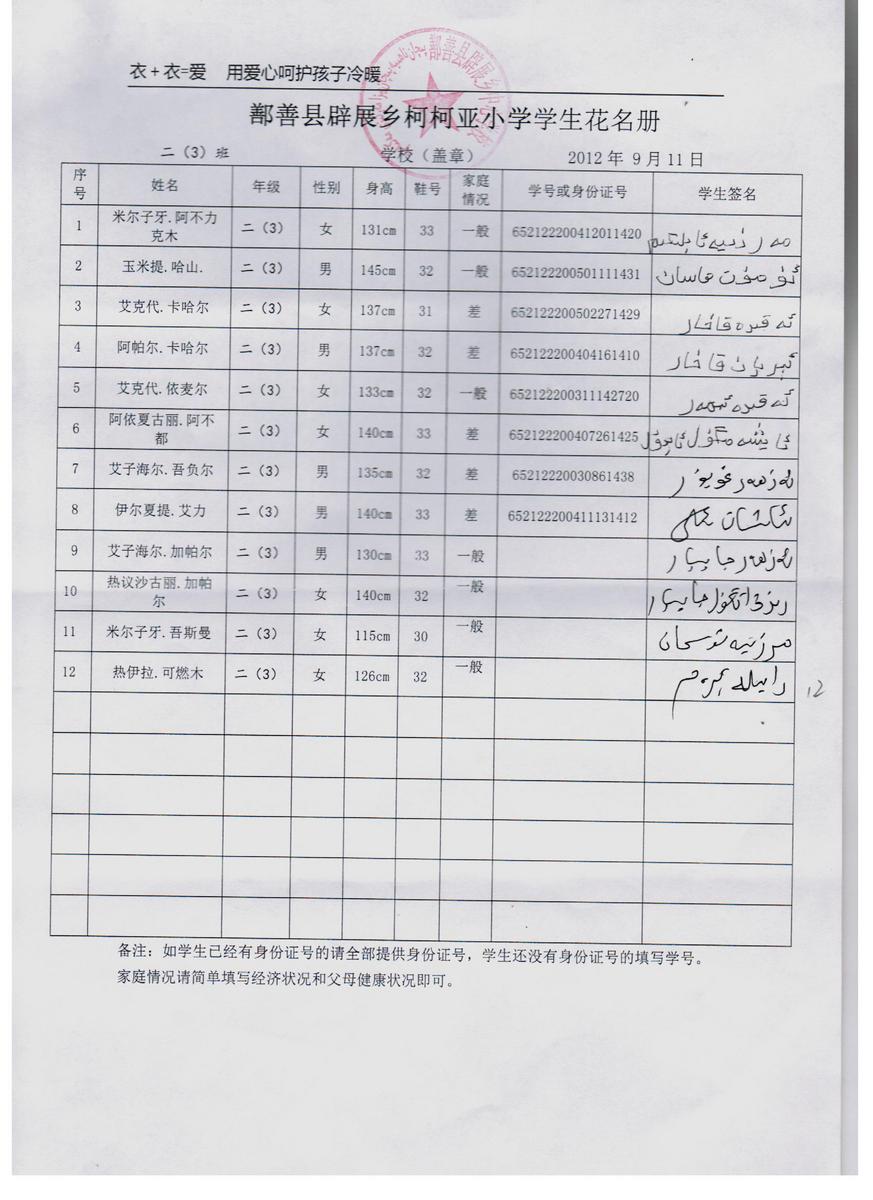 衣+衣=爱 用爱心呵护孩子冷暖
鄯善县辟展乡柯柯亚小学学生花名册
二（3）班 学校（盖章） 2012 年 9 月 11 日
序号 姓名 年级 性别 身高 鞋号 家庭情况 学号或身份证号 学生签名
1 米尔子牙.阿不力克木 二（3） 女 131cm 33 一般 652122200412011420
2 玉米提.哈山. 二（3） 男 145cm 32 一般 652122200501111431
3 艾克代.卡哈尔 二（3） 女 137cm 31 差 652122200502271429
4 阿帕尔.卡哈尔 二（3） 男 137cm 32 差 652122200404161410
5 艾克代.依麦尔 二（3） 女 133cm 32 一般 652122200311142720
6 阿依夏古丽.阿不都 二（3） 女 140cm 33 差 652122200407261425
7 艾子海尔.吾负尔 二（3） 男 135cm 32 差 65212220030861438
8 伊尔夏提.艾力 二（3） 男 140cm 33 差 652122200411131412
9 艾子海尔.加帕尔 二（3） 男 130cm 33 一般
10 热议沙古丽.加帕尔 二（3） 女 140cm 32 一般
11 米尔子牙.吾斯曼 二（3） 女 115cm 30 一般
12 热伊拉.可燃木 二（3） 女 126cm 32 一般 12
备注：如学生已经有身份证号的请全部提供身份证号，学生还没有身份证号的填写学号。
家庭情况请简单填写经济状况和父母健康状况即可。